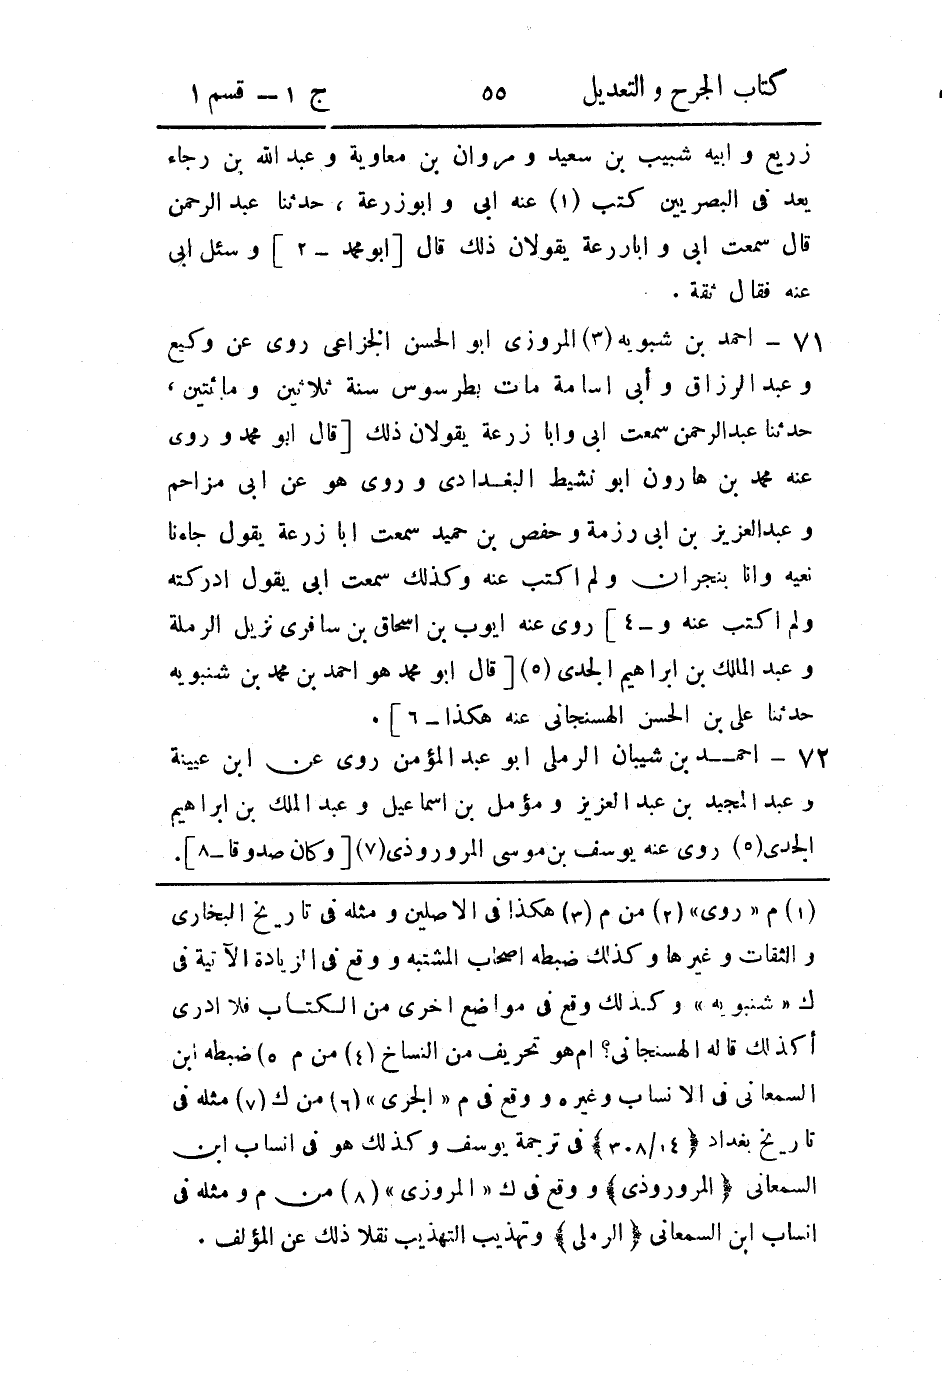 كتاب الجرح و التعديل ٥٥ ج ١ – قسم ١
زريع و ابيه شبيب بن سعيد و مروان بن معاوية و عبد الله بن رجاء
يعد فى البصريين كتب (١) عنه ابى و ابوزرعة ، حدثنا عبد الرحمن
قال سمعت ابى و اباررعة يقولان ذلك قال [ابو محمد – ٢ ] و سئل ابى
عنه فقال ثقة .
٧١ – احمد بن شبويه (٣) المروزى ابو الحسن الخزاعى روى عن وكيع
و عبد الرزاق و أبى اسامة مات بطرسوس سنة ثلاثين و مائتين ،
حدثنا عبدالرحمن سمعت ابى وابا زرعة يقولان ذلك [قال ابو محمد و روى
عنه محمد بن هارون ابو نشيط البغدادى و روى هو عن ابى مزاحم
و عبدالعزيز بن ابى رزمة و حفص بن حميد سمعت ابا زرعة يقول جاءنا
نعيه وانا بنجران ولم اكتب عنه وكذلك سمعت ابى يقول ادركته
ولم اكتب عنه و – ٤ ] روى عنه ايوب بن اسحاق بن سافرى نزيل الرملة
و عبد المالك بن ابراهيم الجدى (٥) [ قال ابو محمد هو احمد بن محمد بن شنبويه
حدثنا على بن الحسن الهسنجانى عنه هكذا – ٦ ] .
٧٢ – احمد بن شيبان الرملى ابو عبد المؤمن روى عن ابن عيينة
و عبد المجيد بن عبد العزيز و مؤمل بن اسماعيل و عبد الملك بن ابراهيم
الجدى (٥) روى عنه يوسف بن موسى المروروذى (٧) [ وكان صدوقا – ٨ ].
(١) م « روى» (٢) من م (٣) هكذا فى الاصلين و مثله فى تاريخ البخارى
و الثقات و غيرها و كذلك ضبطه اصحاب المشتبه و وقع فى الزيادة الآتية فى
ك « شنبويه » و كذلك وقع فى مواضع اخرى من الكتاب فلا ادرى
أكذلك قاله الهسنجانى؟ ام هو تحريف من النساخ (٤) من م ٥) ضبطه ابن
السمعانى فى الانساب وغيره و وقع فى م « الجرى » (٦) من ك (٧) مثله فى
تاريخ بغداد ﴿ ٣٠٨/١٤ ﴾ فى ترجمة يوسف و كذلك هو فى انساب ابن
السمعانى ﴿ المروروذى ﴾ و وقع فى ك « المروزى » (٨) من م و مثله فى
انساب ابن السمعانى ﴿ الرملى ﴾ وتهذيب التهذيب نقلا ذلك عن المؤلف .